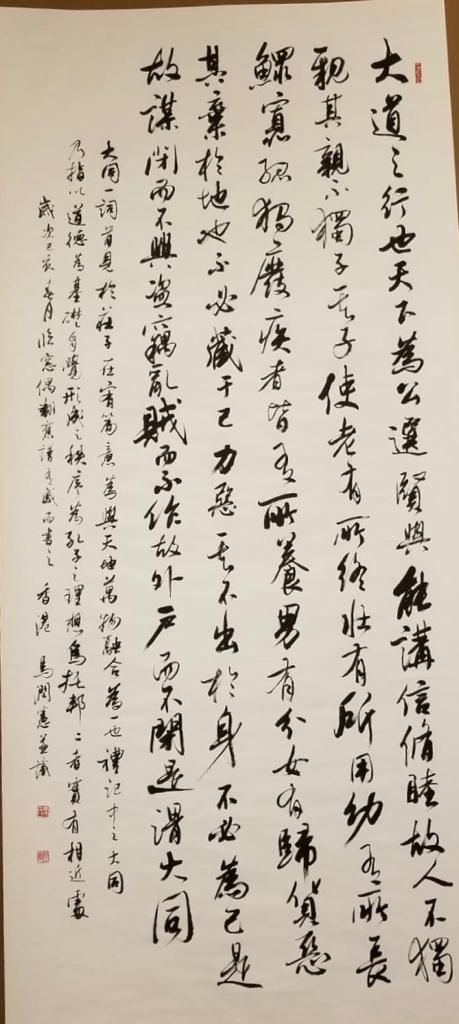 大道之行也天下為公選賢與能講信脩睦故人不獨
親其親不獨子其子使老有所終壯有所用幼有所長
鰥寡孤獨廢疾者皆有所養男有分女有歸貨惡
其棄於地也不必藏于己力惡其不出於身不必為己是
故謀閉而不興盜竊亂賊而不作故外戶而不閉是謂大同
大同一詞首見於莊子在宥篇意為與天地萬物融合為一也禮記中之大同
乃指以道德為基礎自覺形成之秩序為孔子之理想烏托邦二者實有相近處
歲次己亥春月臨窗偶翻舊譜有感而書之 香港 馬潤憲並識